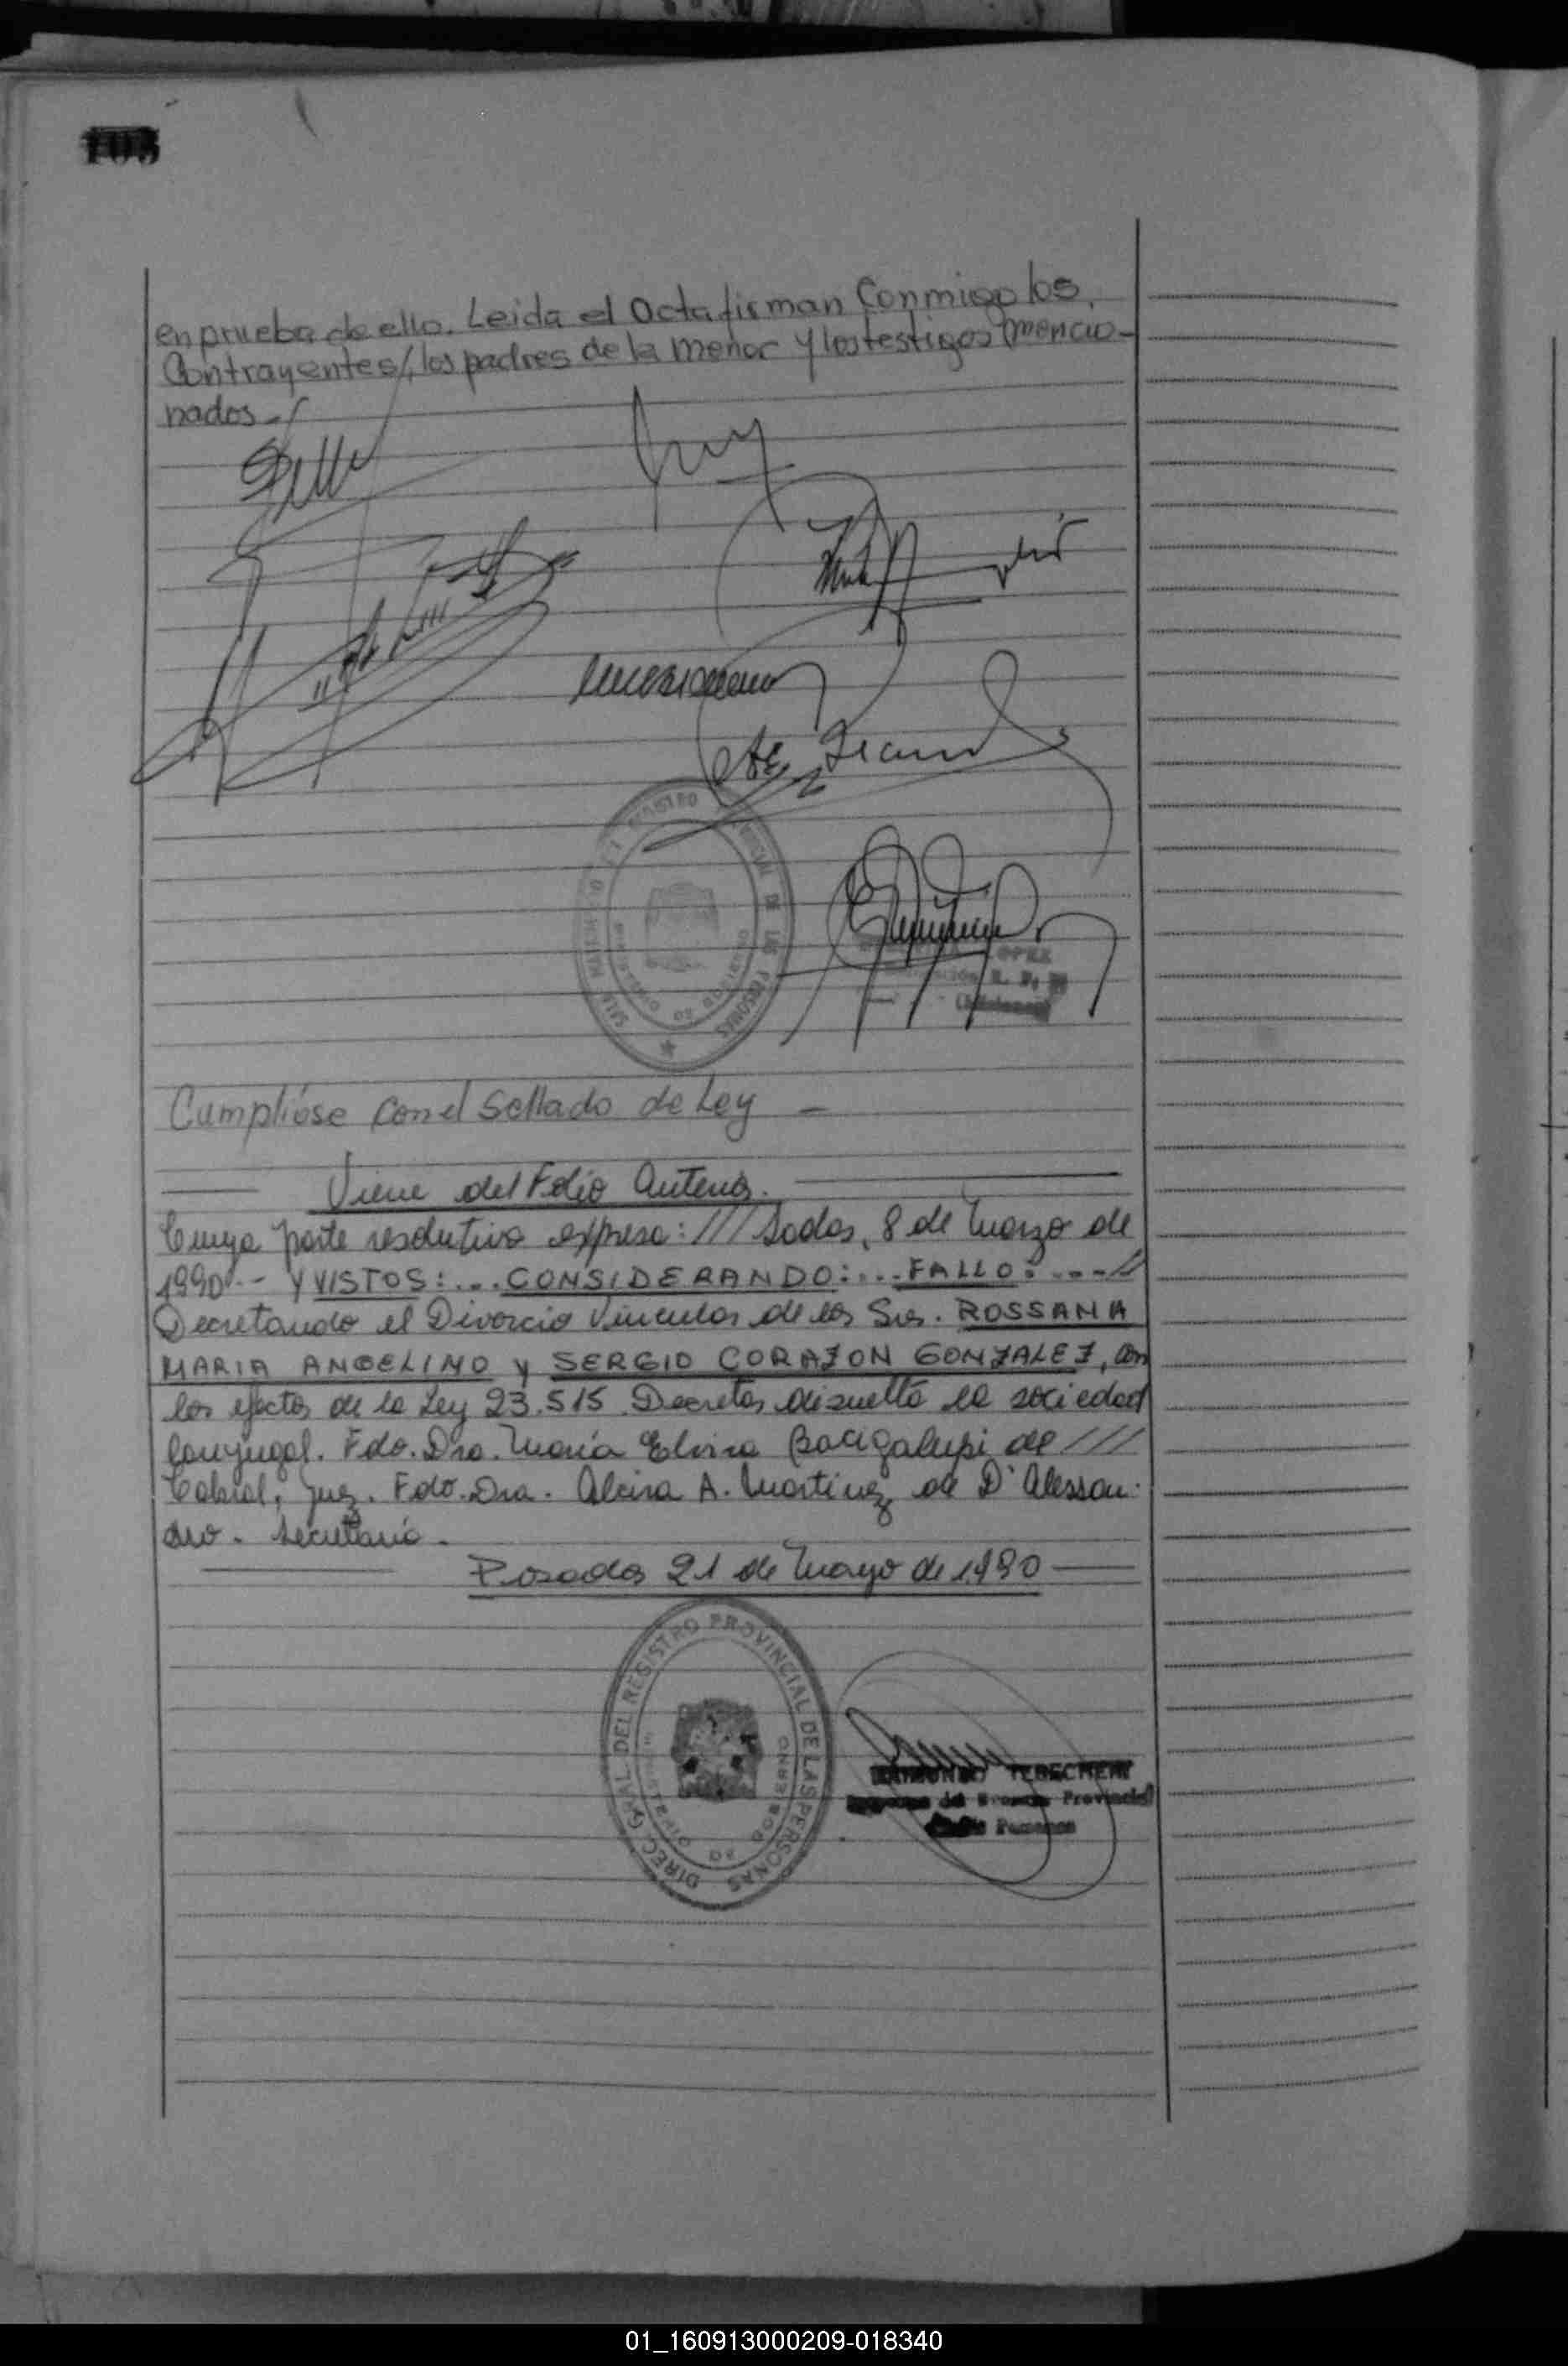 105
en prueba de ello. Leida el Octa firman Conmigo los,
Contrayentes/, los padres de la menor y los testigos mencio-
nados.-
REGISTRO PROVINCIAL DE LAS PERSONAS
MINISTERIO DE GOBIERNO
LOPEZ
Cumplióse con el Sellado de Ley —
Viene del Folio Anterior.
Cuya parte resolutiva expresa: /// sadas, 8 de Marzo de
1990.-- Y VISTOS:... CONSIDERANDO:... FALLO: ...-//
Decretando el Divorcio Vincular de los Sres. ROSSANA
MARIA ANGELINO y SERGIO CORAZON GONZALEZ, con
los efectos de la Ley 23.515. Decretar disuelta la sociedad
Conyugal. Fdo. Dra. María Elvira Bacigalupi de ///
Cabral, Juez. Fdo. Dra. Alcira A. Martinez de D'Alessan-
dro - Secretaria.
Posadas 21 de Mayo de 1990
DIREC. GRAL. DEL REGISTRO PROVINCIAL DE LAS PERSONAS
MINISTERIO DE GOBIERNO
RAIMUNDO TEBECHERI
del Provincial
de Personas
01_160913000209-018340